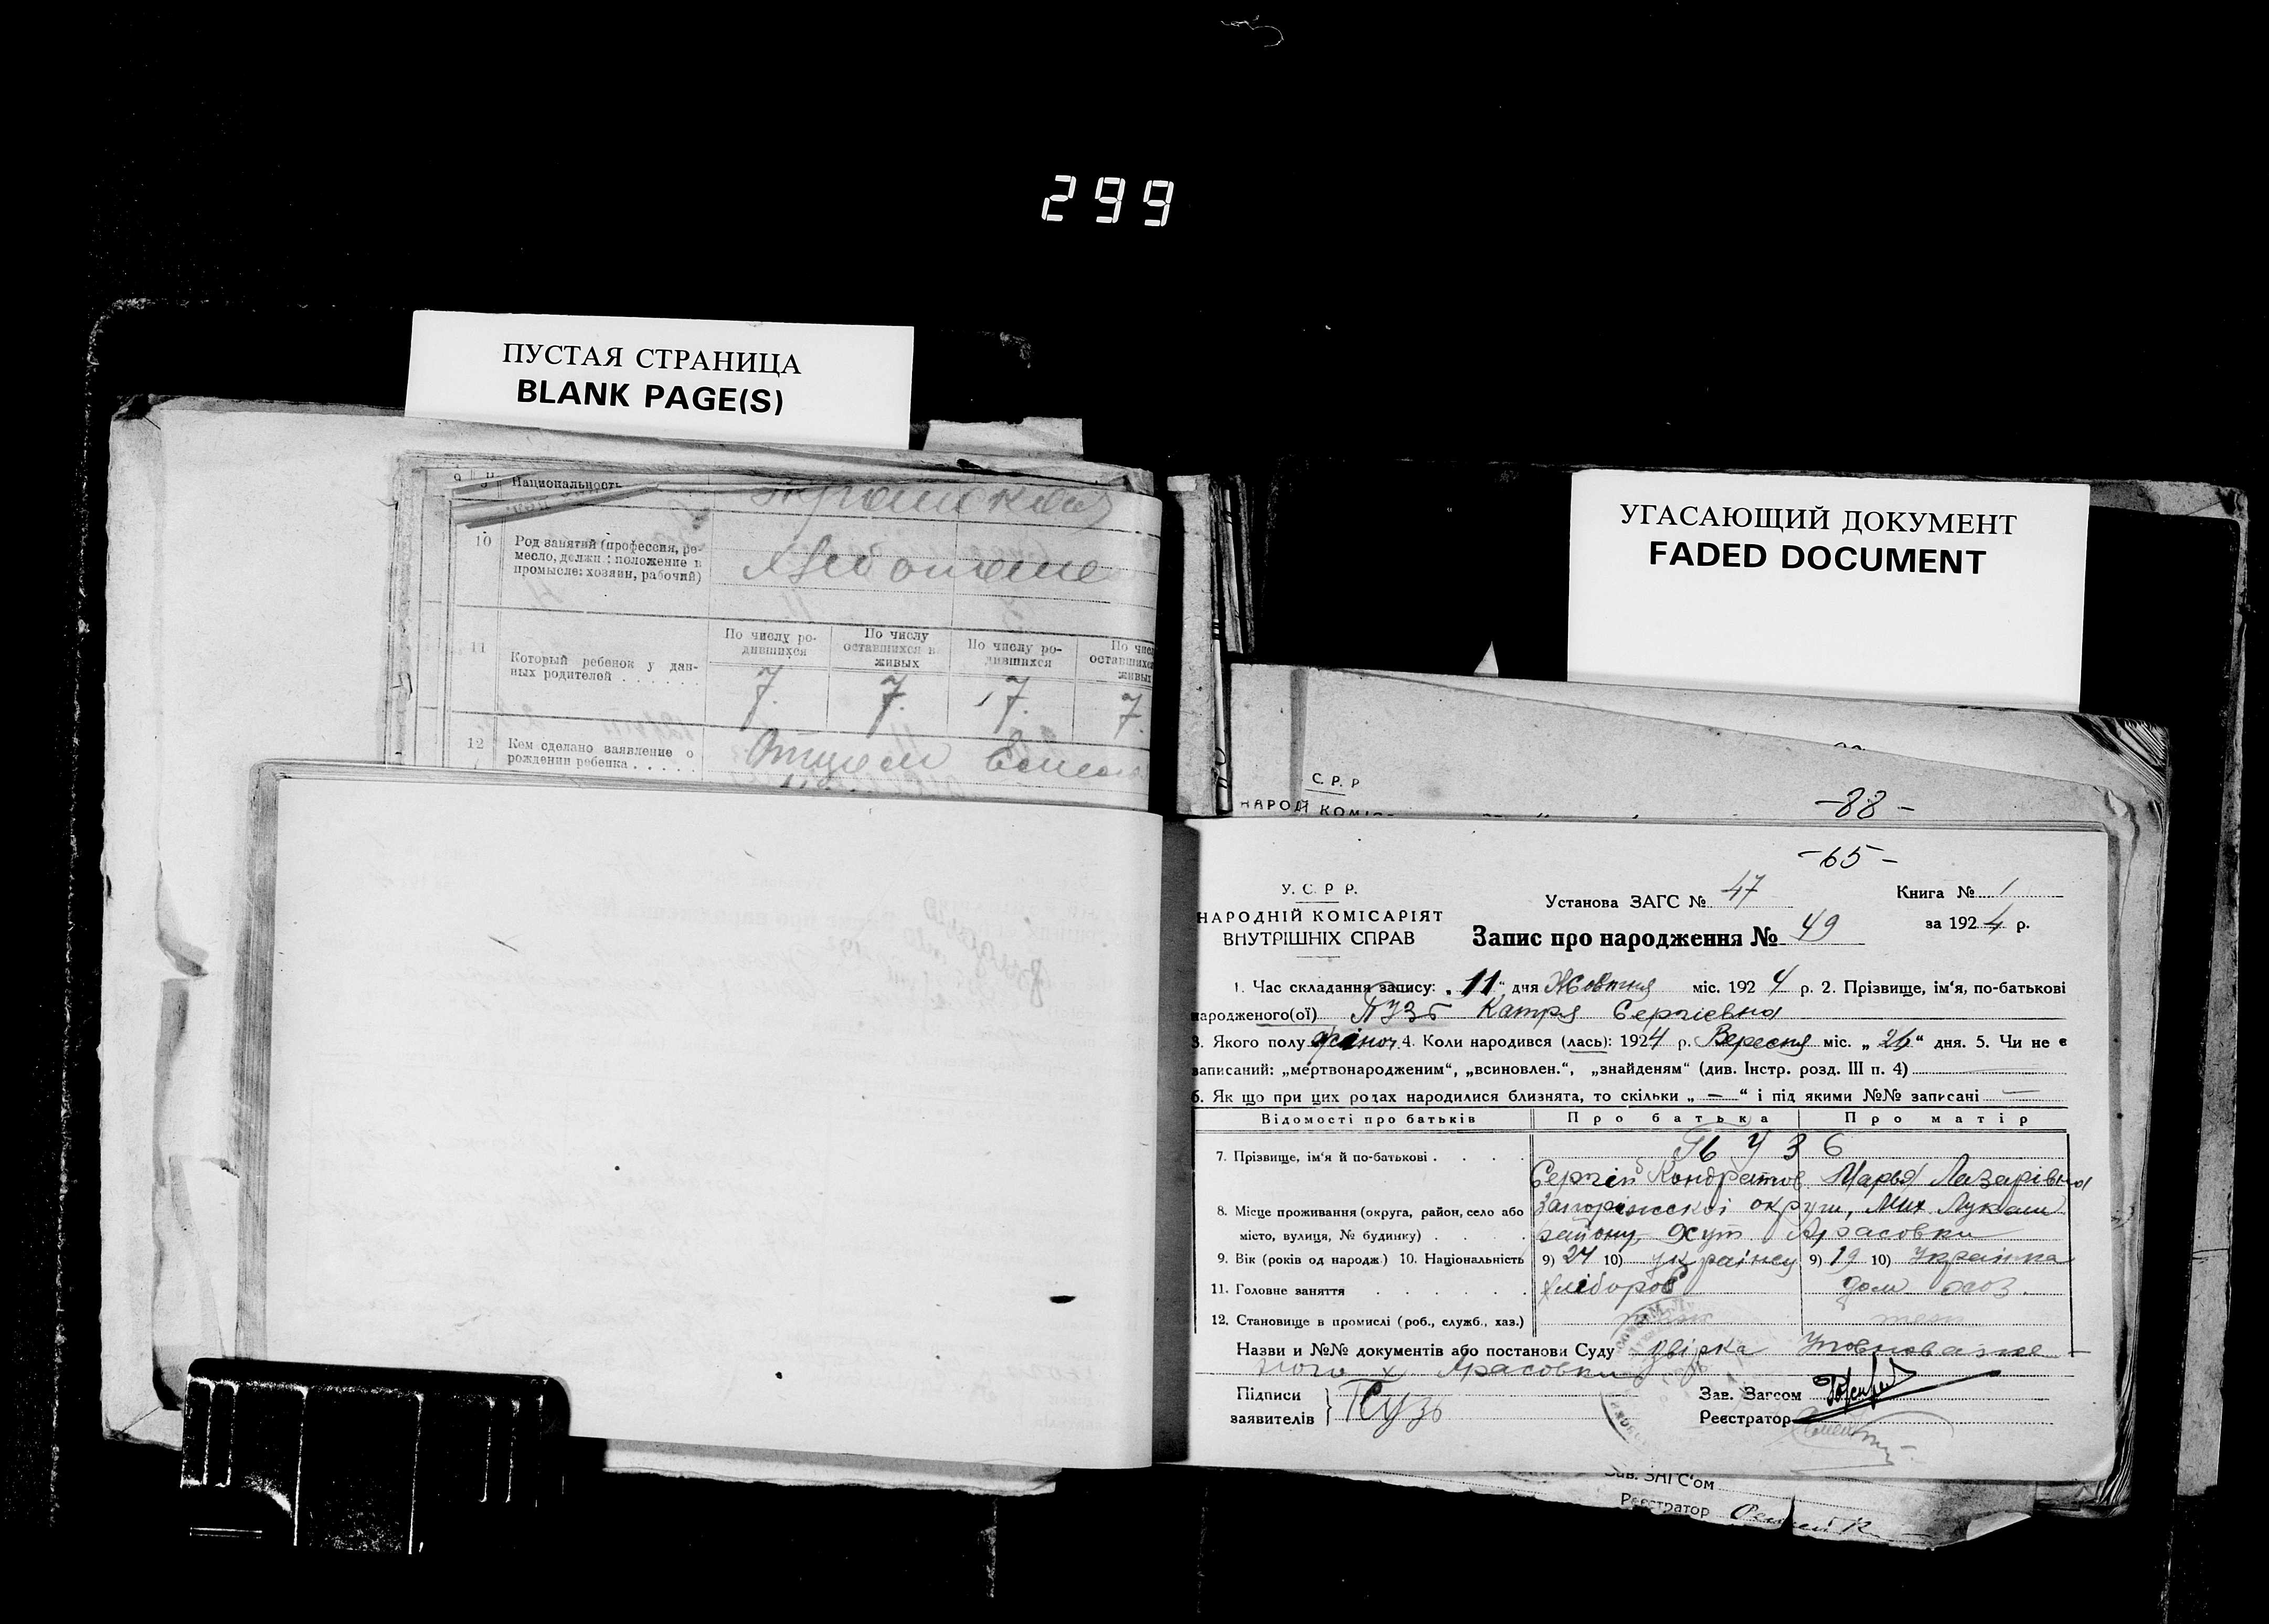 299
ПУСТАЯ СТРАНИЦА
BLANK PAGE(S)
УГАСАЮЩИЙ ДОКУМЕНТ
FADED DOCUMENT
Национальность
10 Род занятий (профессия, ре-
месло, должн.: положение в
промысле: хозяин, рабочий)
По числу ро-
дившихся
По числу
оставшихся в
живых
По числу ро-
дившихся
По числ
оставшихся
живых
11 Который ребенок у дан-
ных родителей . . . . . .
7. 7. 7. 7.
12 Кем сделано заявление о
рождении ребенка . . . . .
Отцем
С. Р. Р
НАРОД КОМІС
-88-
-65-
У. С. Р. Р.
НАРОДНІЙ КОМІСАРІЯТ
ВНУТРІШНІХ СПРАВ
Установа ЗАГС № 47
Книга № 1
за 1924 р.
Запис про народження № 49
1. Час складання запису: „11“ дня Жовтня міс. 1924 р. 2. Прізвище, ім‘я, по-батькові
народженого(ої) Пузь Катря Сергієвна
3. Якого полу жіноч. 4. Коли народився (лась): 1924 р. Вересня міс. „26“ дня. 5. Чи не є
записаний: „мертвонародженим“, „всиновлен.“, „знайденям“ (див. Інстр. розд. III п. 4)
6. Як що при цих родах народилися близнята, то скільки „ — “ і під якими №№ записані —
Відомості про батьків Про батька Про матір
7. Прізвище, ім‘я й по-батькові . . . . Пузь
Сергій Кондратов Марья Лазарівна
8. Місце проживання (округа, район, село або Запоріжскої округи, Мих Лукаш
місто, вулиця, № будинку) . . . . району, хут
9. Вік (років од народж.) 10. Національність 9) 24 10) українец 9) 19 10) Українка
11. Головне заняття . . . . . . хлібороб дом хоз.
12. Становище в промислі (роб., служб., хаз.)
Назви и №№ документів або постанови Суду
Підписи
заявителів } Пузь
Зав. Загсом
Реєстратор
Зав. ЗАГС‘ом
Реєстратор